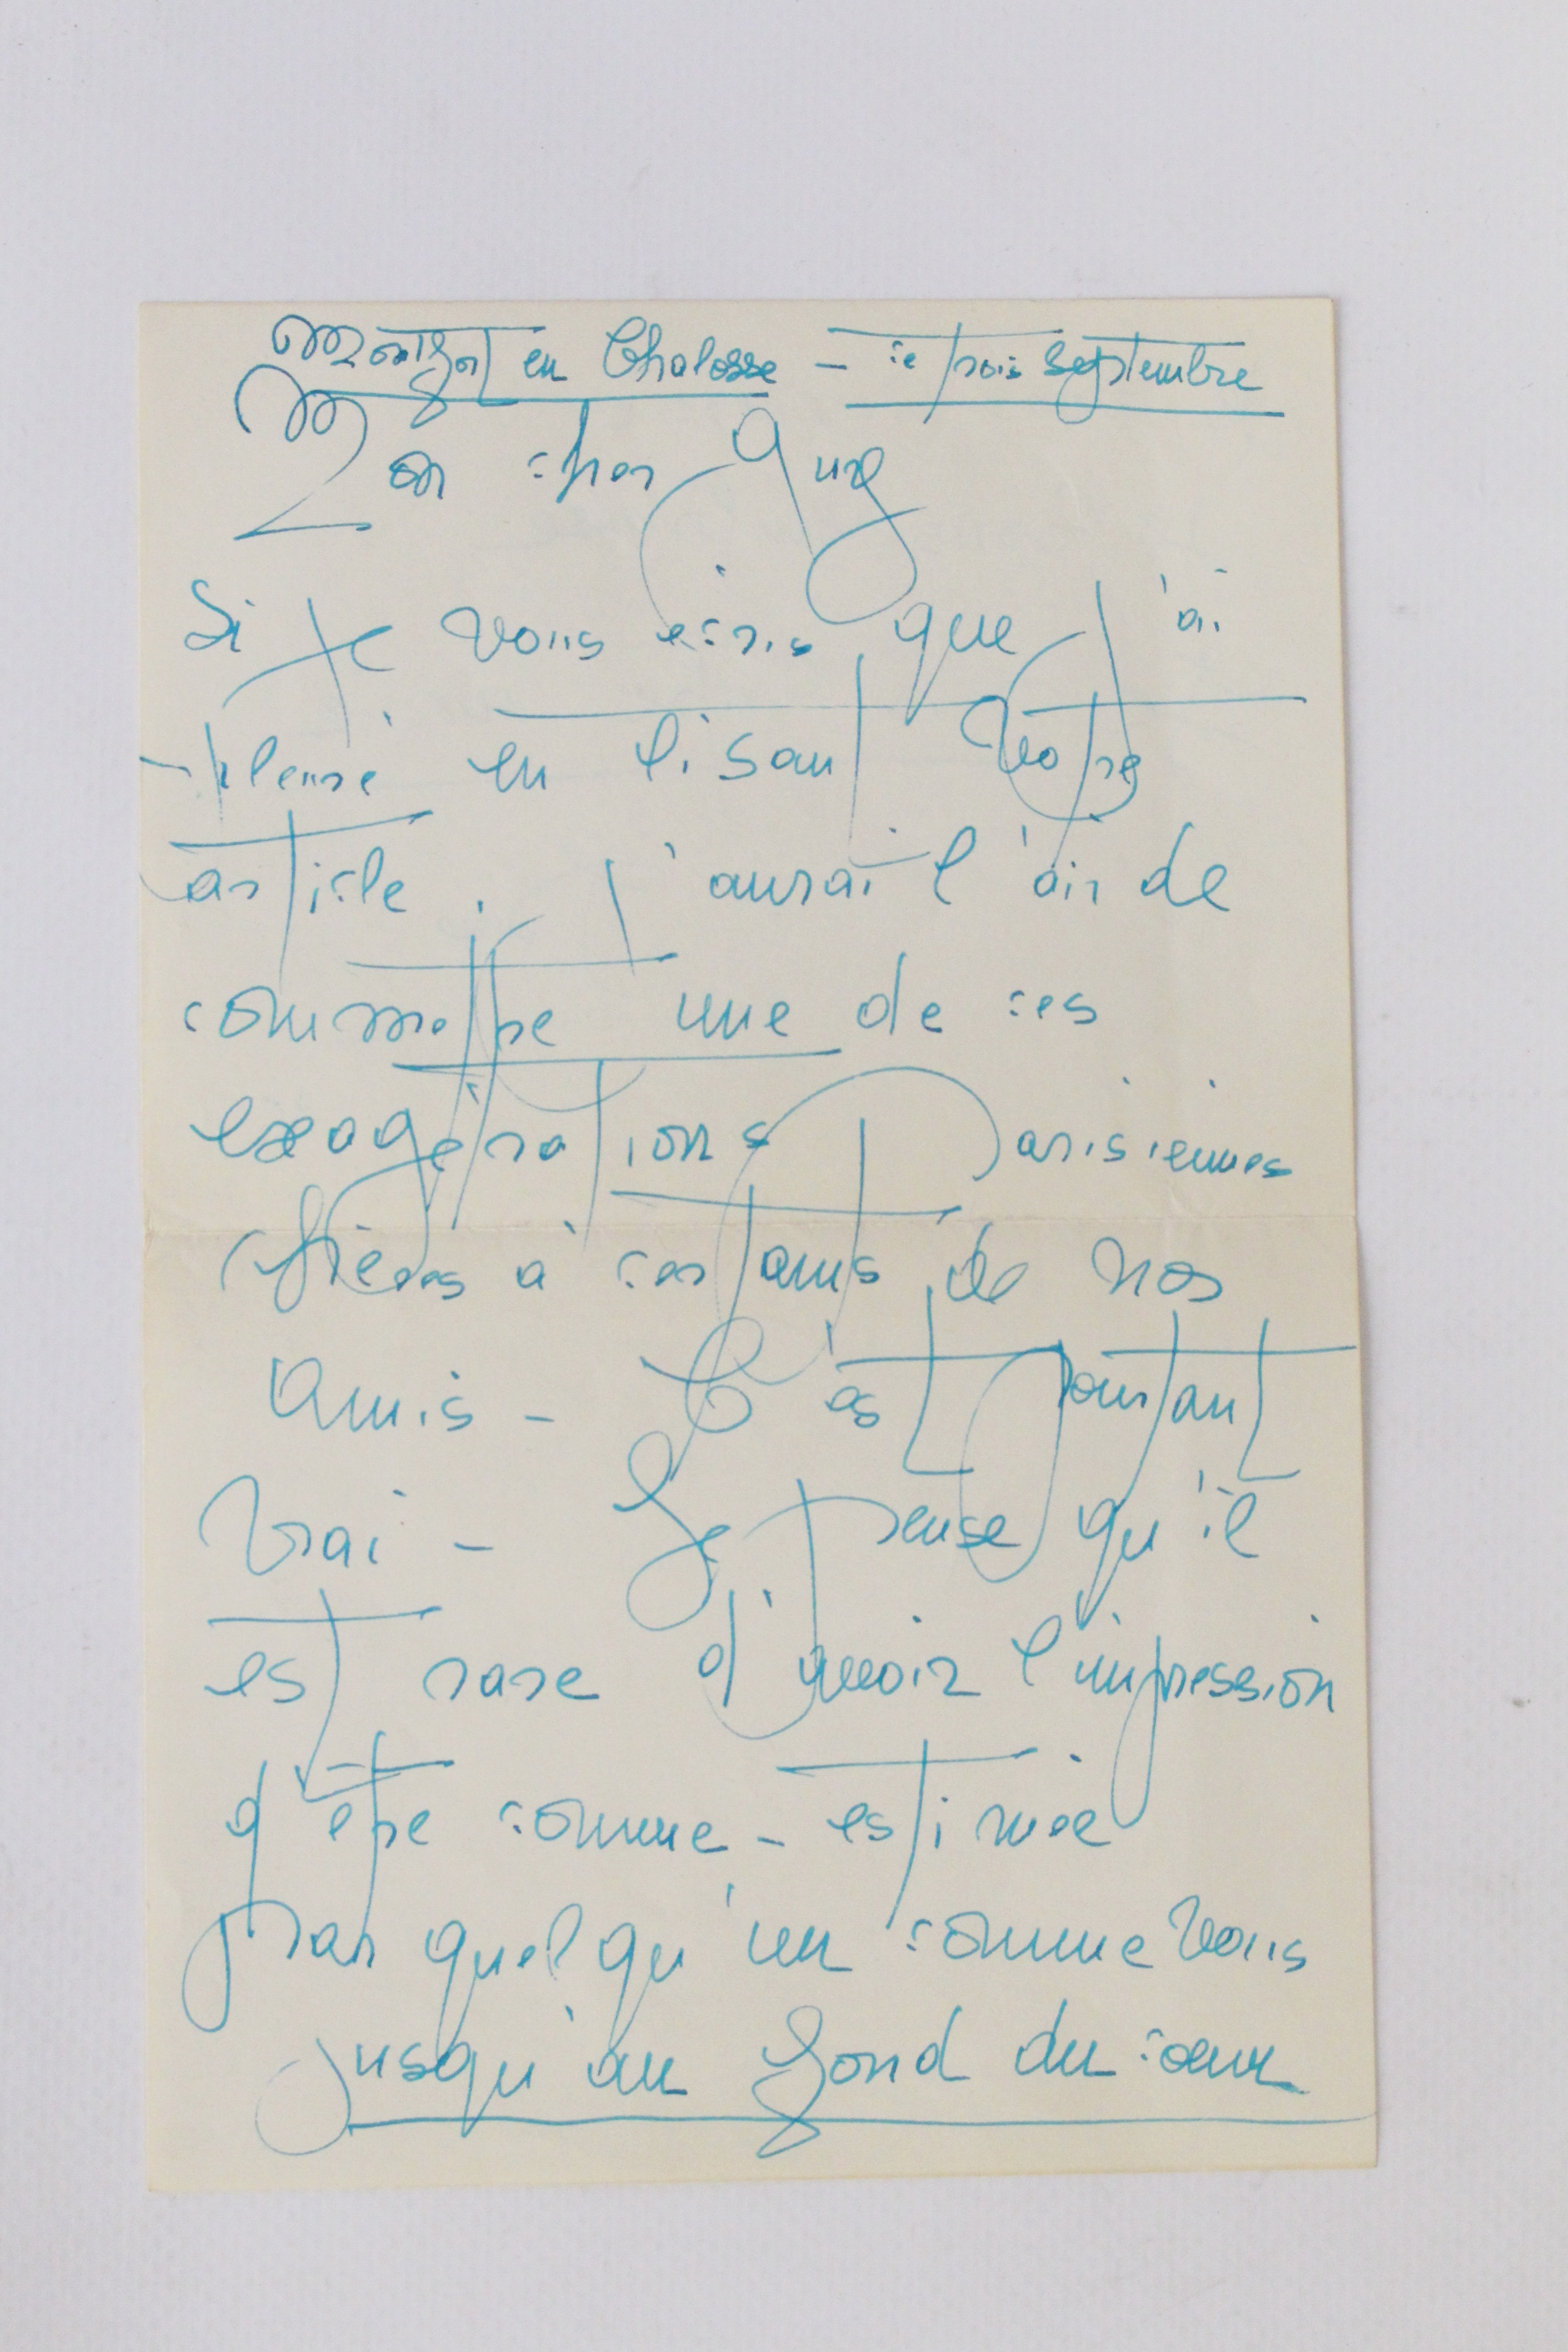 Montfort en Chalosse - ce trois septembre
Mon cher Guy
Si je vous écris que j'ai
pleuré en lisant votre
article. j'aurai l'air de
commettre une de ces
exagérations Parisiennes
chères à certains de nos
Amis - C'est pourtant
Vrai - Je pense qu'il
est rare d'avoir l'impression
d'être connue - estimée
par quelqu'un comme Vous
jusqu'au fond du cœur